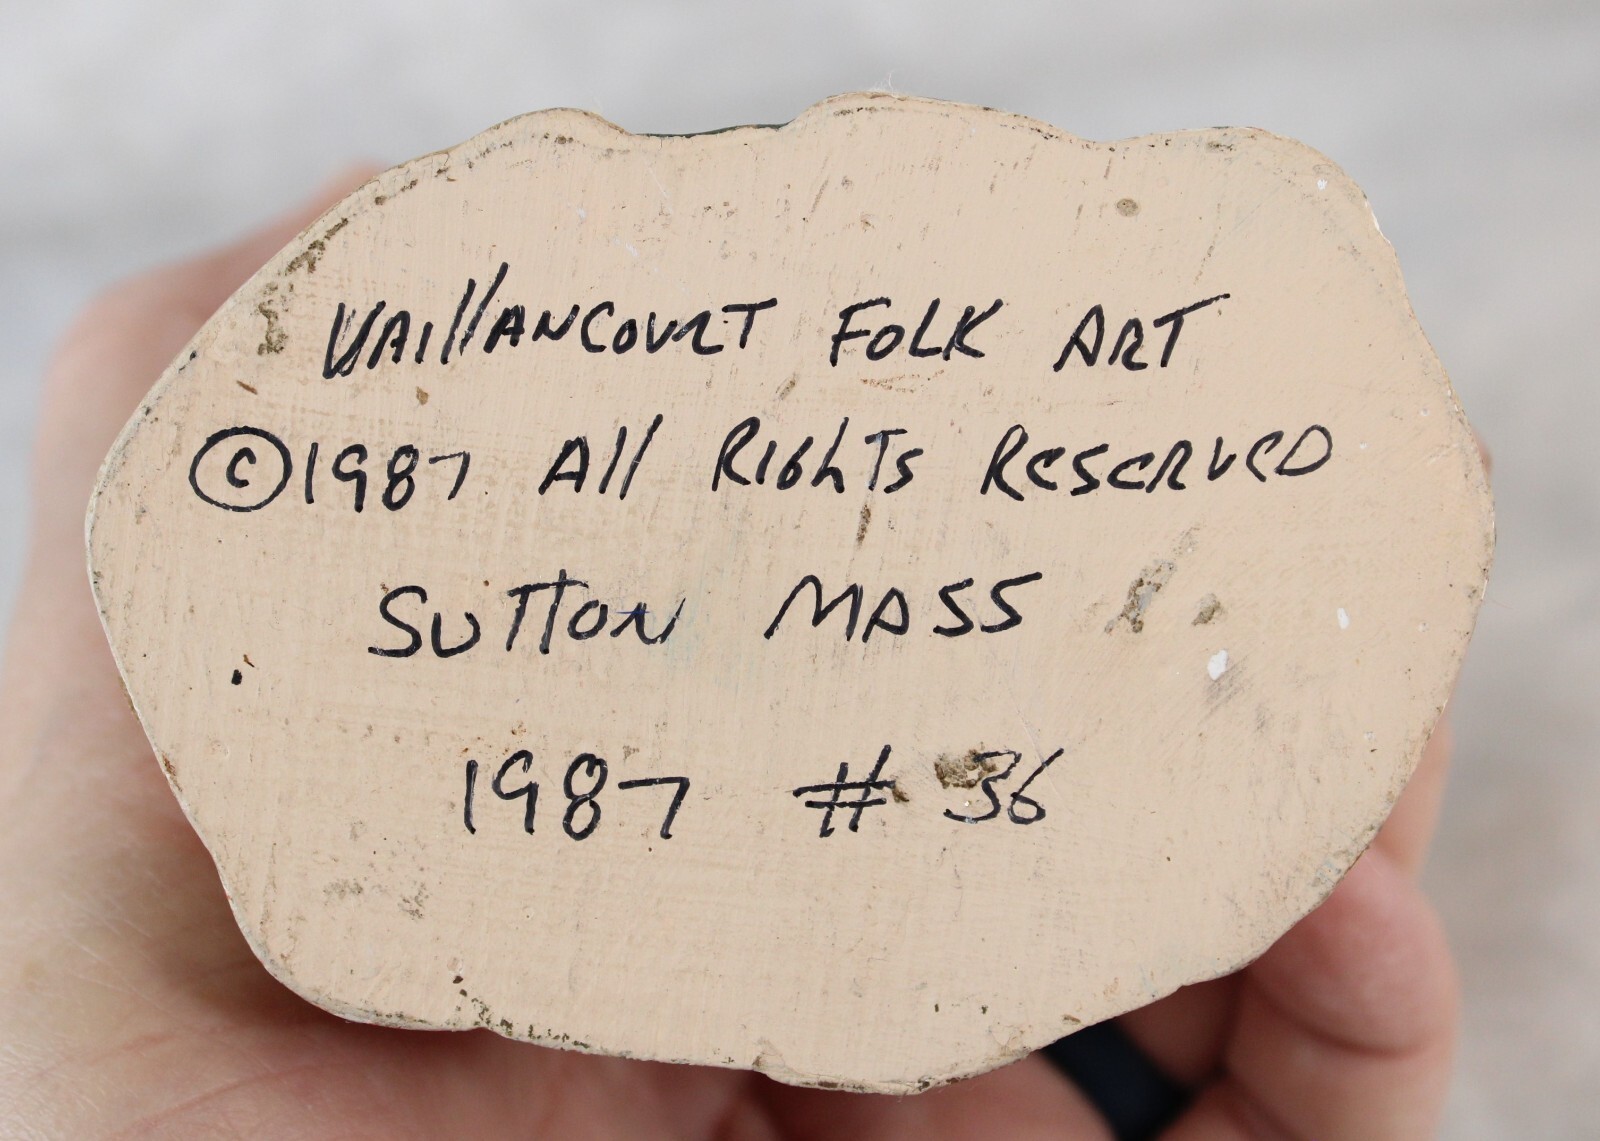 VAillANCOURT FOLK ART
©1987 All RIGhTS ReSeRVeD
SUTTON MASS
1987 # 36